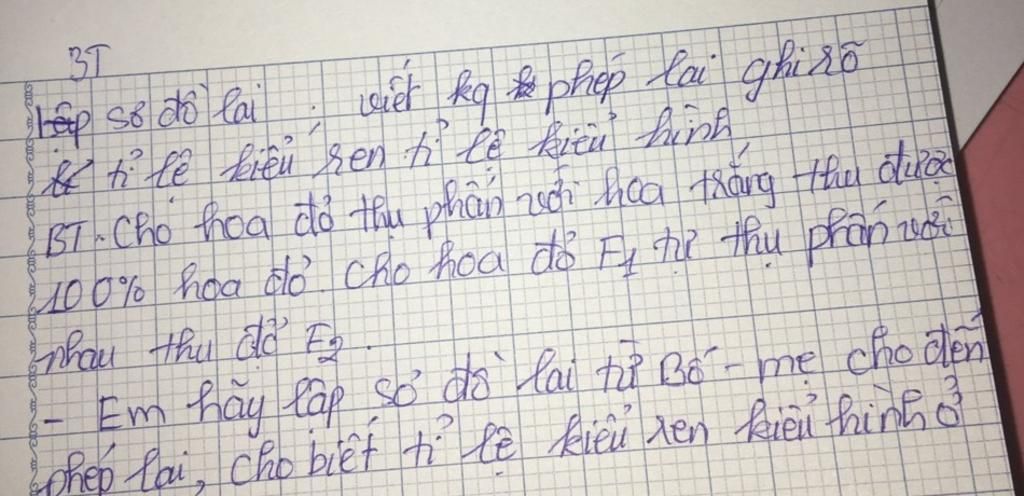 BT
lập sơ đồ lai, viết kq phép lai ghi rõ
tỉ lệ kiểu gen tỉ lệ kiểu hình
BT. Cho hoa đỏ thụ phấn với hoa trắng thu được
100% hoa đỏ. Cho hoa đỏ F1 tự thụ phấn với
nhau thu đc F2.
- Em hãy lập sơ đồ lai từ Bố - mẹ cho đến
phép lai, cho biết tỉ lệ kiểu gen kiểu hình ở